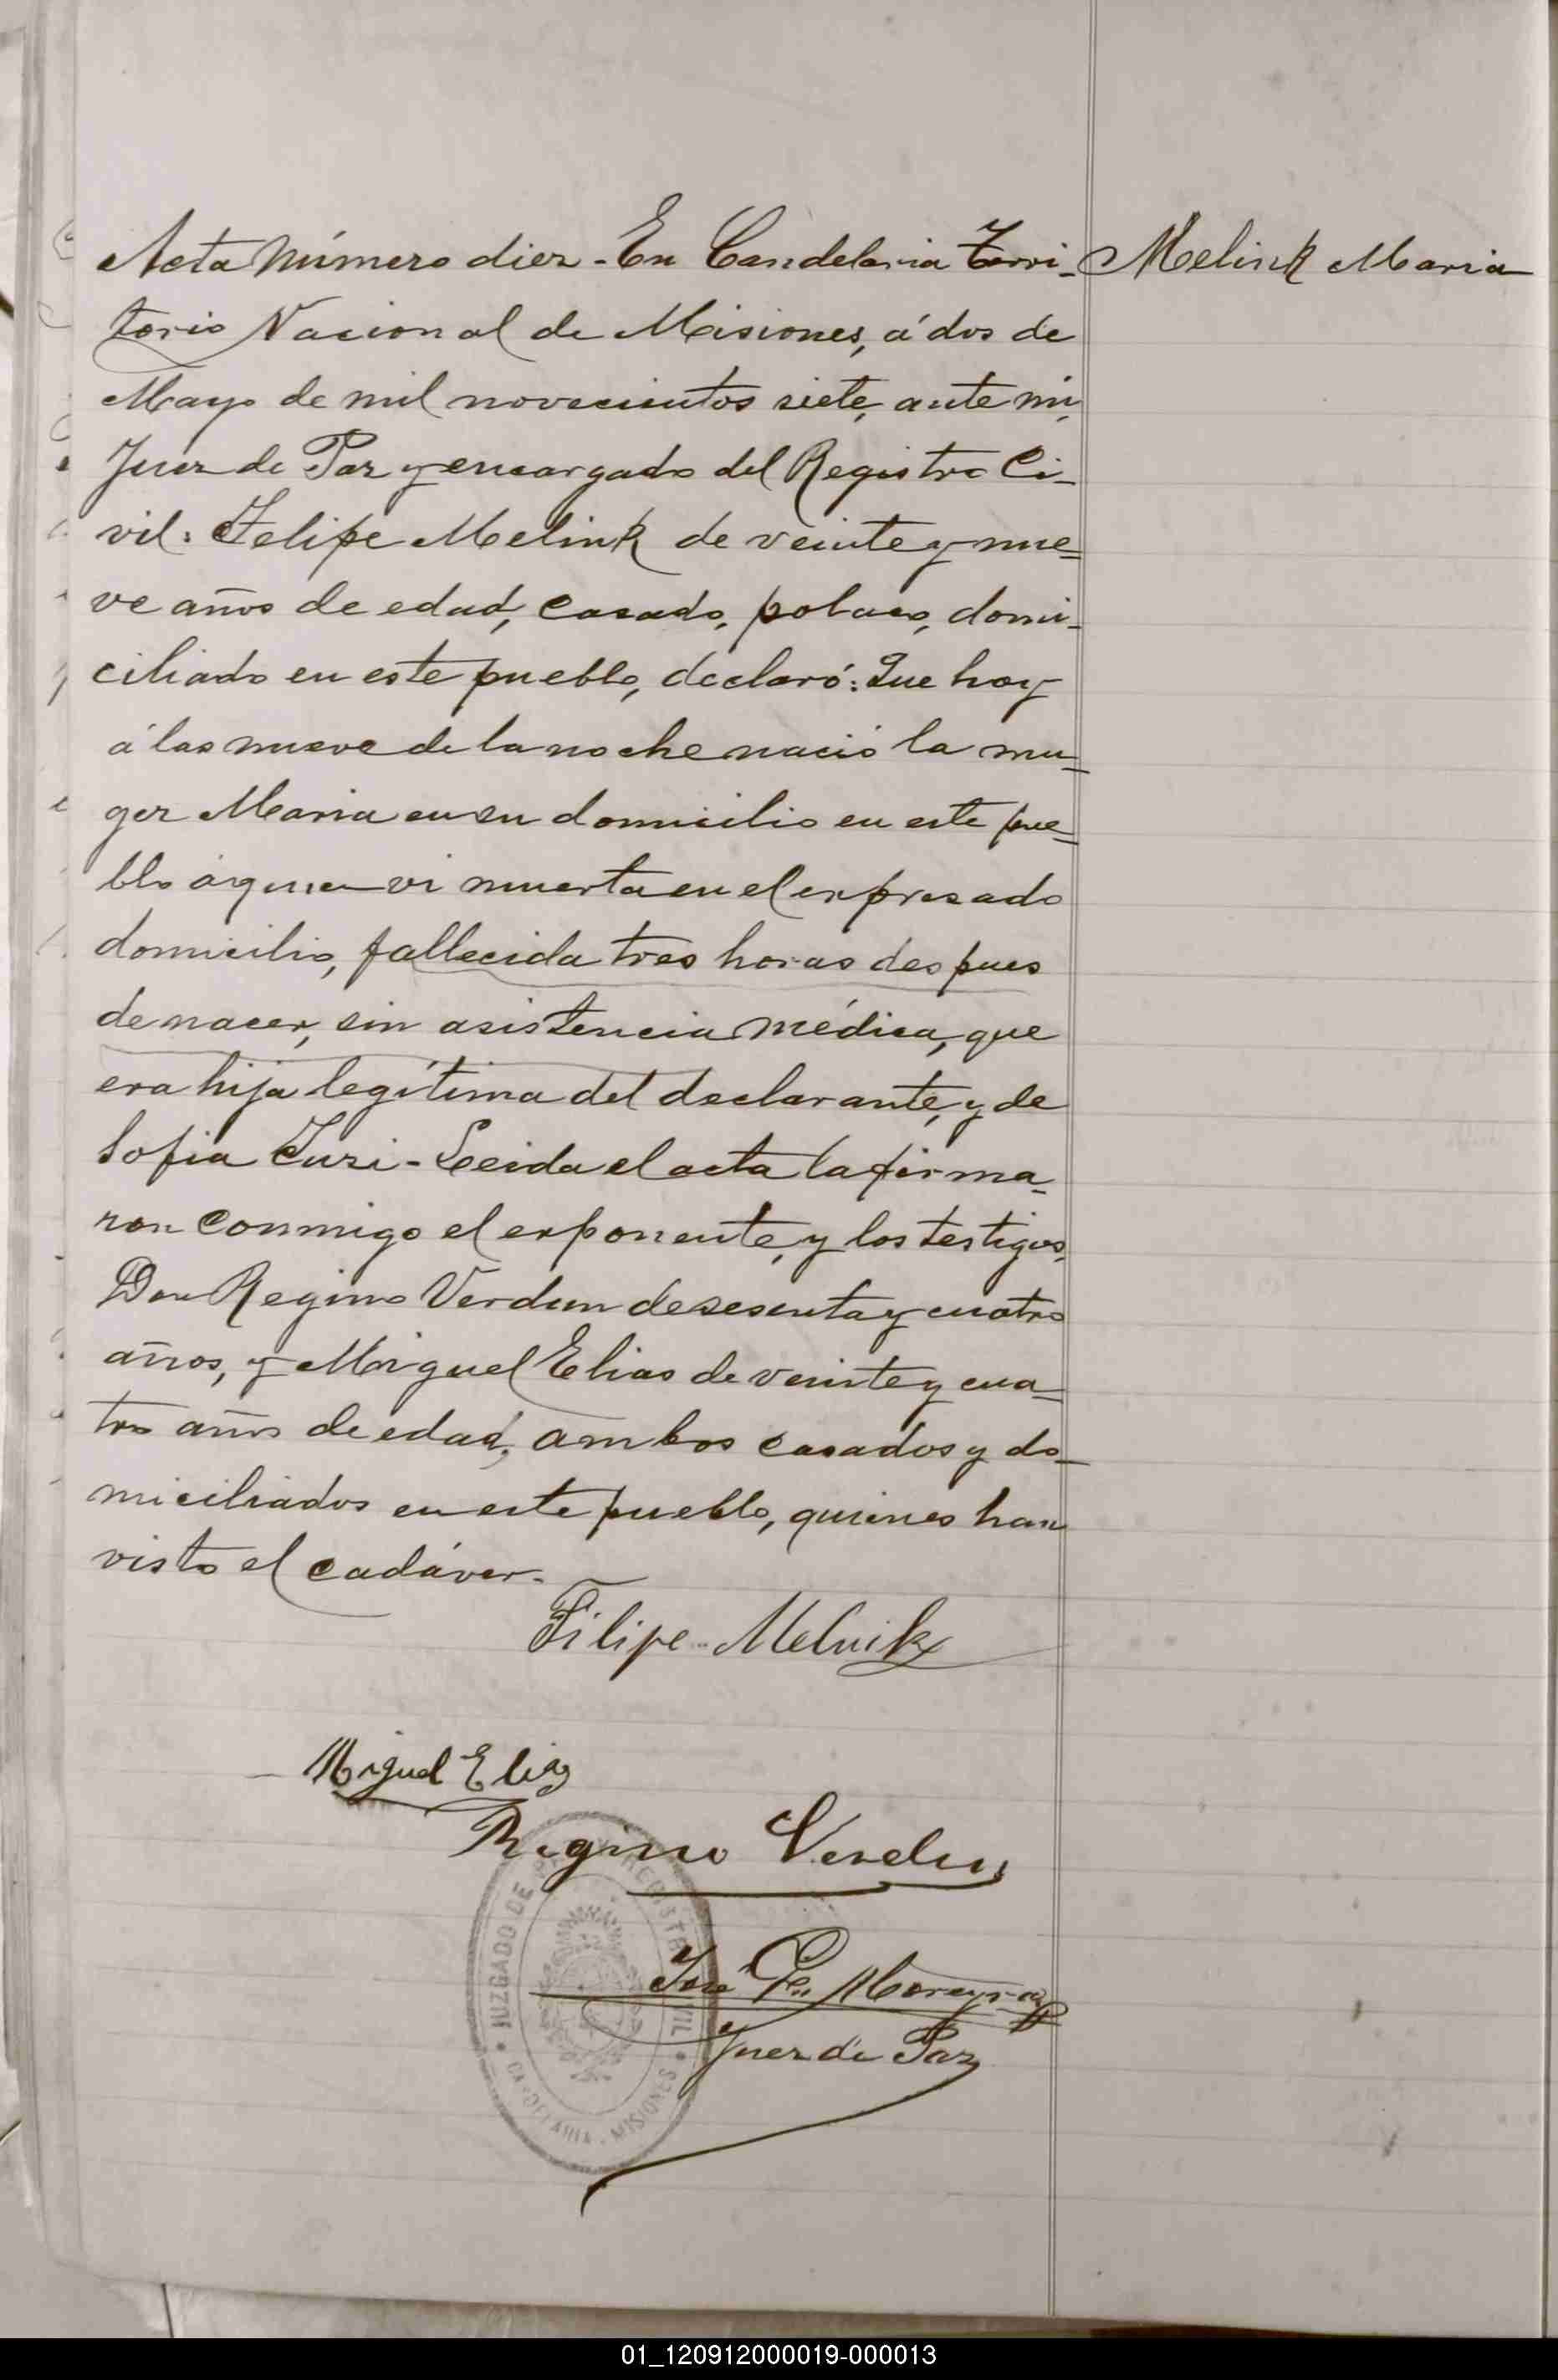 Acta Número diez - En Candelaria Terri-
Melink Maria
torio Nacional de Misiones, á dos de
Mayo de mil novecientos siete, ante mi,
Juez de Paz y encargado del Registro Ci-
vil: Felipe Melink de veinte y nue-
ve años de edad, casado, polaco, domi-
ciliado en este pueblo, declaró: Que hoy
á las nueve de la noche nació la mu-
ger Maria en su domicilio en este pue-
blo á quien vi muerta en el expresado
domicilio, fallecida tres horas despues
de nacer, sin asistencia médica, que
era hija legítima del declarante, y de
Sofia Turi - Leida el acta la firma-
ron conmigo el exponente, y los testigos,
Don Regino Verdun de sesenta y cuatro
años, y Miguel Elias de veinte y cua-
tro años de edad, ambos casados y do-
miciliados en este pueblo, quienes han
visto el cadáver.
Filipe Melnik
Miguel Elias
Regino Verdun
José G. Moreyra
Juez de Paz
JUZGADO DE PAZ Y REGISTRO CIVIL
CANDELARIA - MISIONES
01_120912000019-000013